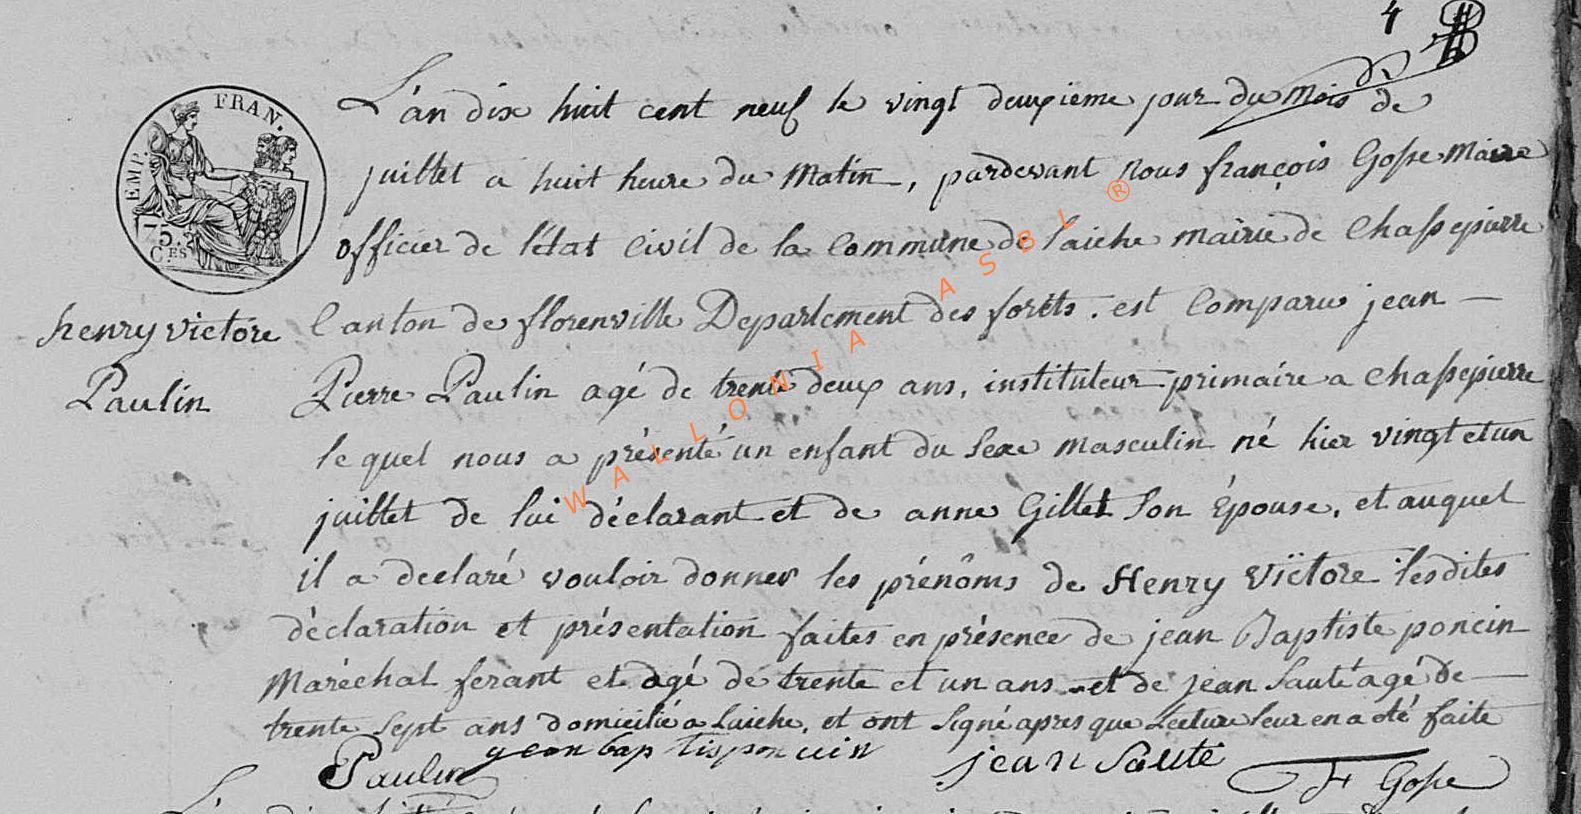 4
L'an dix huit cent neuf le vingt deuxieme jour du Mois de
juillet a huit heure du Matin, pardevant Nous françois Gosse Maire
officier de l'état Civil de la Commune de laiche Mairie de Chassepierre
Canton de florenville Departement des foréts. est Comparu jean
Pierre Paulin agé de trente deux ans, instituteur primaire a Chassepierre
le quel nous a présenté un enfant du Sexe Masculin né hier vingt et un
juillet de lui déclarant et de anne Gillet Son Épouse, et auquel
il a declaré vouloir donner les prénôms de Henry Victore lesdites
déclaration et présentation faites en présence de jean Baptiste poncin
Maréchal ferant et agé de trente et un ans et de jean Sauté agé de
trente Sept ans domicilié a laiche, et ont Signé apres que Lecture leur en a été faite
Paulin jean bap tis pon cin jean Sauté F Gosse
henry victore
Paulin
EMP. FRAN.
75.
C.ES
WALLONIA ASBL ®